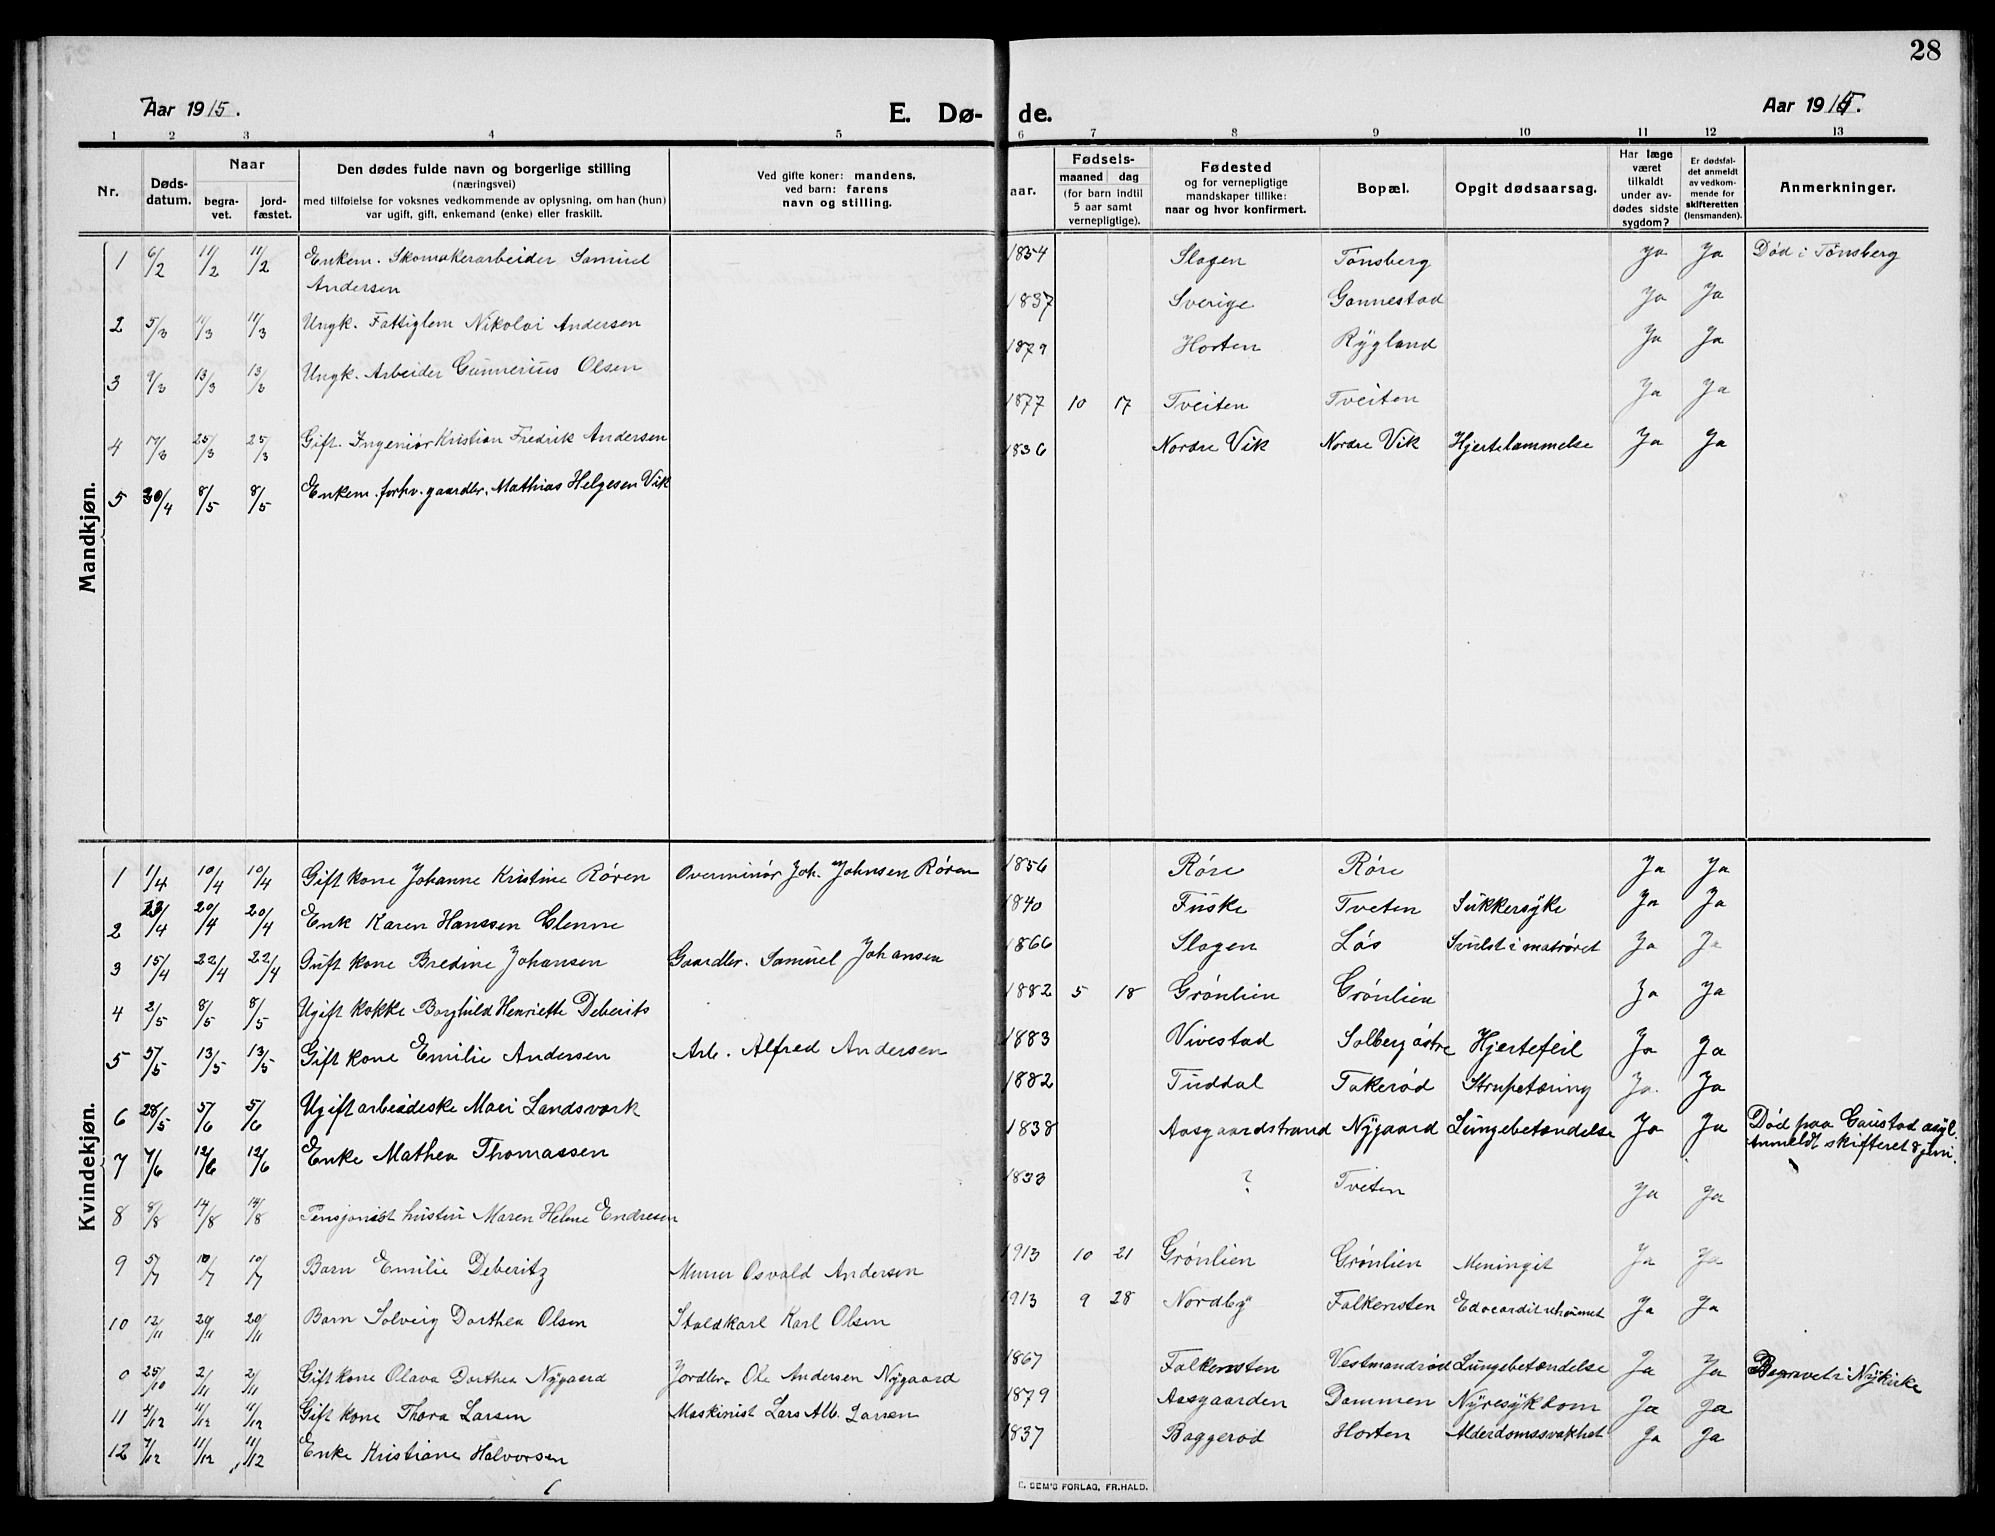 28
Aar 1915.
E. Dø- de.
Aar 1915.
1 2 3 4 5 6 7 8 9 10 11 12 13
Nr.
Døds-
datum.
Naar
begra-
vet.
jord-
fæstet.
Den dødes fulde navn og borgerlige stilling
(næringsvei)
med tilføielse for voksnes vedkommende av oplysning, om han (hun)
var ugift, gift, enkemand (enke) eller fraskilt.
Ved gifte koner: mandens,
ved barn: farens
navn og stilling.
aar.
Fødsels-
maaned dag
(for barn indtil
5 aar samt
vernepligtige).
Fødested
og for vernepligtige
mandskaper tillike:
naar og hvor konfirmert.
Bopæl.
Opgit dødsaarsag.
Har læge
været
tilkaldt
under av-
dødes sidste
sygdom?
Er dødsfal-
det anmeldt
av vedkom-
mende for
skifteretten
(lensmanden).
Anmerkninger.
Mandkjøn.
1 6/2 11/2 11/2 Enkem. Skomakerarbeider Samuel
Andersen
1854 Slagen Tønsberg Ja Ja Død i Tønsberg
2 5/3 11/3 11/3 Ungk. Fattiglem Nikolai Andersen
1837 Sverige Gannestad Ja Ja
3 9/3 13/3 13/3 Ungk. Arbeider Gunnerius Olsen
1879 Horten Rygland Ja Ja
4 17/3 25/3 25/3 Gift. Ingeniør Kristian Fredrik Andersen
1877 10 17 Tveiten Tveiten Ja Ja
5 30/4 8/5 8/5 Enkem. forhv. gaardbr. Mathias Helgesen Vik
1836 Nordre Vik Nordre Vik Hjertelammelse Ja Ja
Kvindekjøn.
1 1/4 10/4 10/4 Gift kone Johanne Kristine Røren Overminør Joh. Johnsen Røren
1856 Røre Røre Ja Ja
2 13/4 20/4 20/4 Enk Karen Hanssen Glenne
1840 Fuske Tveten Sukkersyke Ja Ja
3 15/4 22/4 22/4 Gift kone Bredine Johansen Gaardbr. Samuel Johansen
1866 Slagen Løs Svulst i matrøret Ja Ja
4 2/5 8/5 8/5 Ugift kokke Borghild Henriette Deberits
1882 5 18 Grønlien Grønlien Ja Ja
5 5/5 13/5 13/5 Gift kone Emilie Andersen Arb. Alfred Andersen
1883 Vivestad Solberg østre Hjertefeil Ja Ja
6 28/5 5/6 5/6 Ugift arbeideske Mari Landsværk
1882 Tuddal Takerød Strupetæring Ja. Ja
7 7/6 12/6 12/6 Enke Mathea Thomassen
1838 Aasgaardstrand Nygaard Lungebetændelse Ja Ja Død paa Gaustad asyl.
Anmeldt skifteret 8 juni.
8 8/8 14/8 14/8 Pensjonist hustru Maren Helene Endresen
1833 ? Tveten Ja Ja
9 5/7 10/7 10/7 Barn Emilie Deberitz Murer Osvald Andersen
1913 10 21 Grønlien Grønlien Meningit Ja Ja
10 12/11 20/11 20/11 Barn Solveig Dorthea Olsen Staldkarl Karl Olsen
1913 9 28 Nordby Falkensten Ja Ja
0 25/10 2/11 2/11 Gift kone Olava Dorthea Nygaard Jordbr. Ole Andersen Nygaard
1867 Falkensten Vestmandrød Lungebetændelse Ja Ja Begravet i Nykirke
11 4/12 11/12 11/12 Gift kone Thora Larsen Maskinist Lars Alb. Larsen
1879 Aasgaarden Dammen Nyresykdom Ja Ja
12 7/12 11/12 11/12 Enke Kristiane Halvorsen
1837 Baggerød Horten Alderdomssvakhet Ja Ja
E. SEM'S FORLAG, FR.HALD.